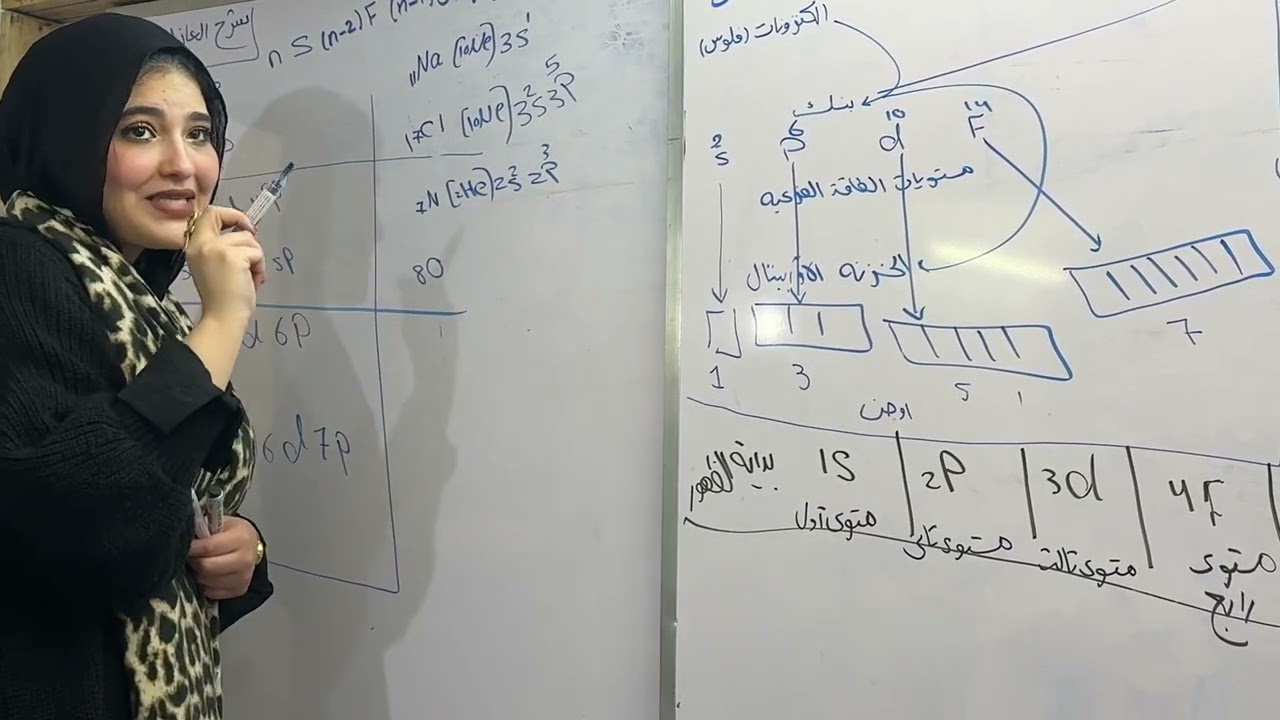 شرح العاز
nS (n-2)F (n-1)
11Na [10Ne] 3S1
17Cl [10Ne] 3S2 3P5
7N [2He] 2S2 2P3
8O
sp
d 6P
6d 7p
الكترونات (فلوس)
بنك
S2 P6 d10 F14
مستويات الطاقة الفرعيه
الخزنه الاوربيتال
1 3 5 7
بداية الظهور 1S 2P 3d 4F
مستوى اول مستوى تانى مستوى تالت مستوى رابع